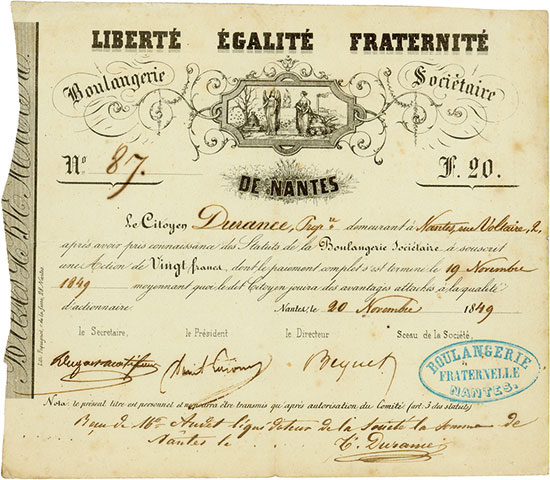 LIBERTÉ ÉGALITÉ FRATERNITÉ
Boulangerie Sociétaire
N° 87. F. 20.
DE NANTES
Le Citoyen Durance, Prop.re demeurant à Nantes, rue Voltaire, 2,
après avoir pris connaissance des Statuts de la Boulangerie Sociétaire à souscrit
une Action de Vingt francs, dont le paiement complet s'est terminé le 19 Novembre
1849 moyennant quoi le dit Citoyen jouira des avantages attachés à la qualité
d'actionnaire. Nantes, le 20 Novembre 1849
le Secrétaire, le Président le Directeur Sceau de la Société,
Becquet
BOULANGERIE
FRATERNELLE
NANTES.
Nota: le présent titre est personnel et ne pourra être transmis qu'après autorisation du Comité (art: 5 des statuts)
Reçu de Mr liquidateur de la Société la somme de
Nantes le Durance